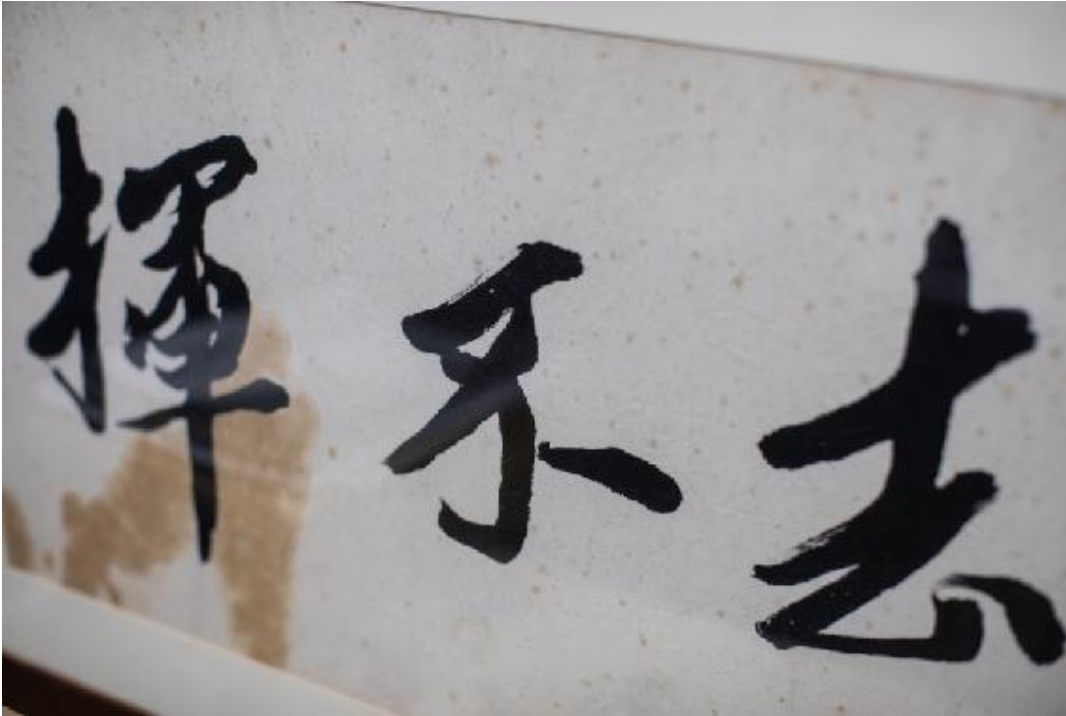 揮不去